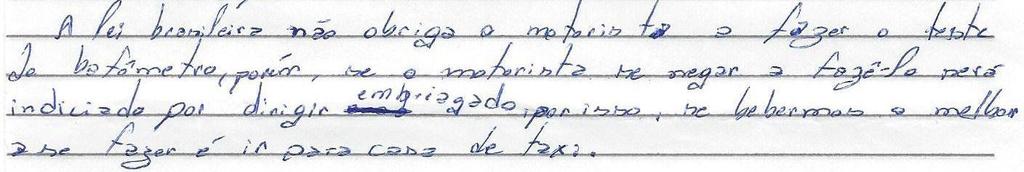 A lei brasileira não obriga o motorista a fazer o teste
do bafômetro, porém, se o motorista se negar a fazê-lo será
indiciado por dirigir embriagado, por isso, se bebermos o melhor
a se fazer é ir para casa de taxi.